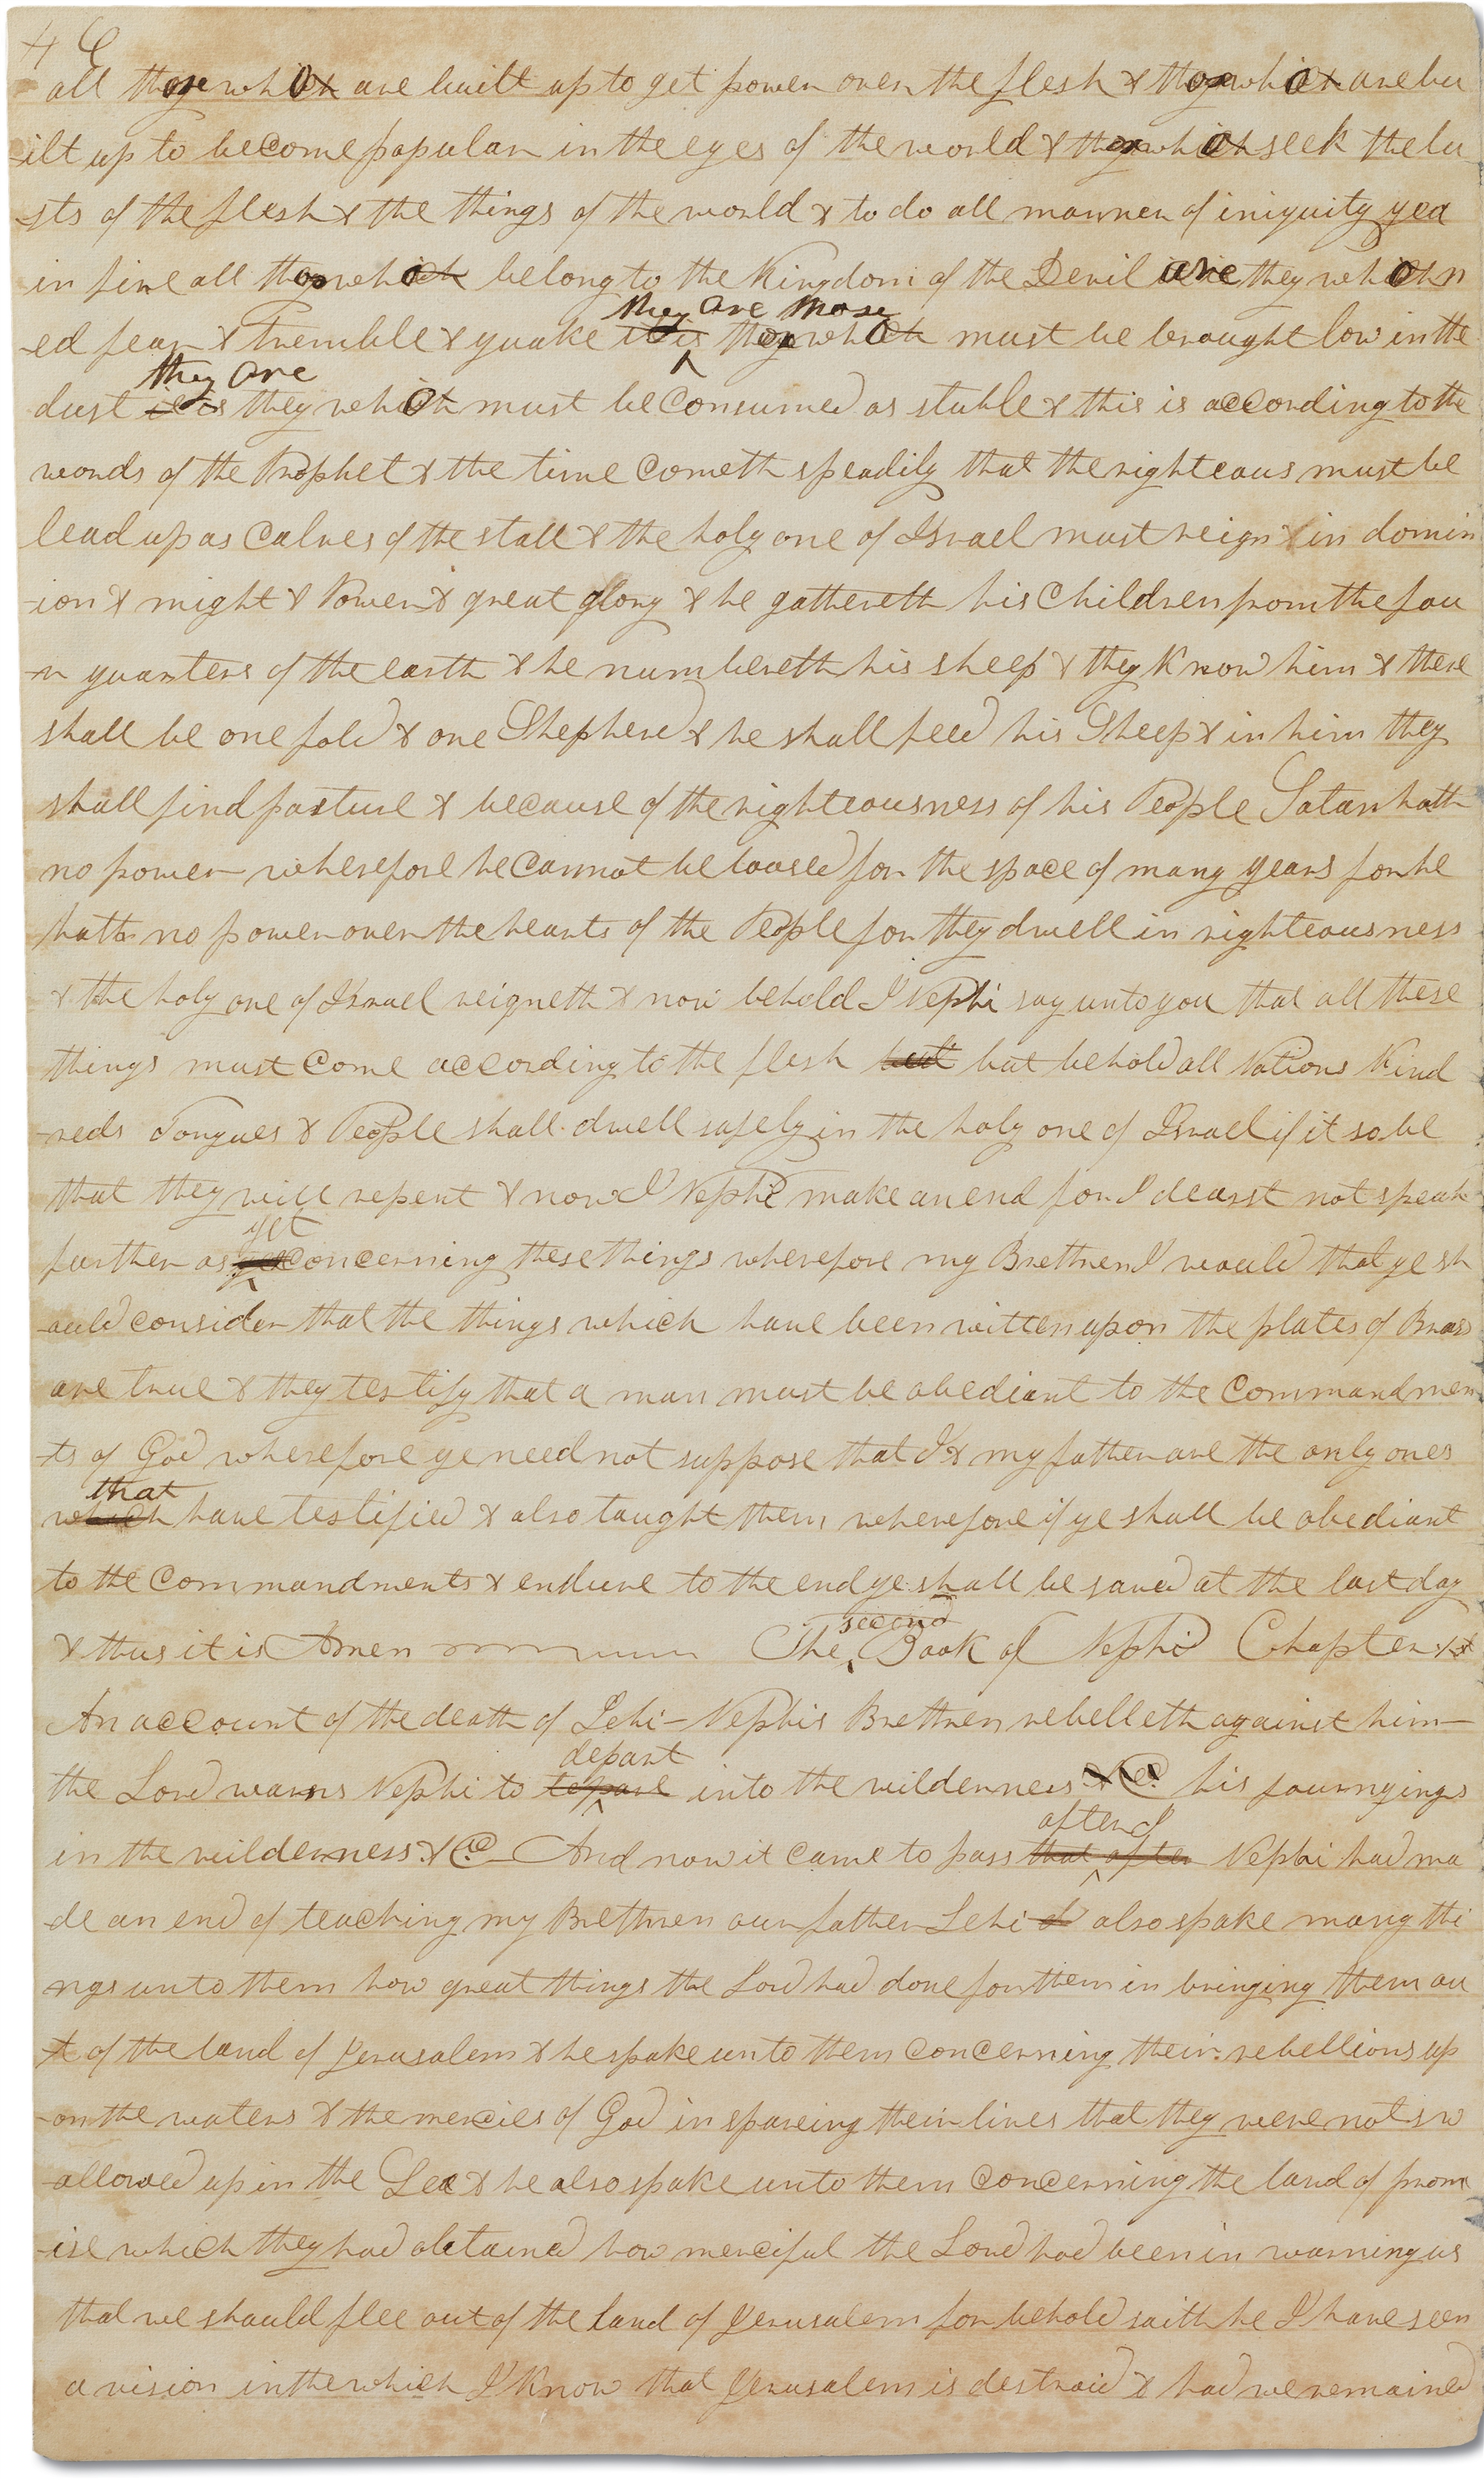 all those who are built up to get power over the flesh & those who are bu
-ilt up to become popular in the eyes of the world & those who seek the lu
-sts of the flesh & the things of the world & to do all manner of iniquity yea
in fine all those who belong to the Kingdom of the Devil are they who n
they are those
-ed fear & tremble & quake it is those who must be brought low in the
they are
dust it is they who must be consumed as stuble & this is according to the
words of the Prophet & the time cometh speadily that the righteous must be
lead up as calves of the stall & the holy one of Israel must reign & in domin
-ion & might & Power & great glory & he gathereth his children from the fou
-r quarters of the earth & he numbereth his sheep & they know him & there
shall be one fold & one Shepherd & he shall feed his Sheep & in him they
shall find pasture & because of the righteousness of his People Satan hath
no power wherefore he cannot be loosed for the space of many years for he
hath no power over the hearts of the People for they dwell in righteousness
& the holy one of Israel reigneth & now behold I Nephi say unto you that all these
things must come according to the flesh but but behold all Nations Kind
-reds Tongues & People shall dwell safely in the holy one of Israel if it so be
that they will repent & now I Nephi make an end for I dearst not speak
yet
further as yet concerning these things wherefore my Brethren I would that ye sh
-ould consider that the things which have been written upon the plates of Brass
are true & they testify that a man must be obediant to the commandmen
-ts of God wherefore ye need not suppose that I & my father are the only ones
that
which have testified & also taught them wherefore if ye shall be obediant
to the commandments & endure to the end ye shall be saved at the last day
second
& thus it is Amen The Book of Nephi Chapter 1st
An account of the death of Lehi— Nephis Brethren rebelleth against him—
depart
the Lord warns Nephi to depart into the wilderness &C his journyings
after I
in the wilderness &C— And now it came to pass that after Nephi had ma
-de an end of teaching my Brethren our father Lehi also spake many thi
ngs unto them how great things the Lord had done for them in bringing them ou
-t of the land of Jerusalem & he spake unto them concerning their rebellions up
-on the waters & the mercies of God in spareing their lives that they were not sw
-allowed up in the Sea & he also spake unto them concerning the land of prom
-ise which they had obtained how merciful the Lord had been in warning us
that we should flee out of the land of Jerusalem for behold saith he I have seen
a vision in the which I know that Jerusalem is destroid & had we remained